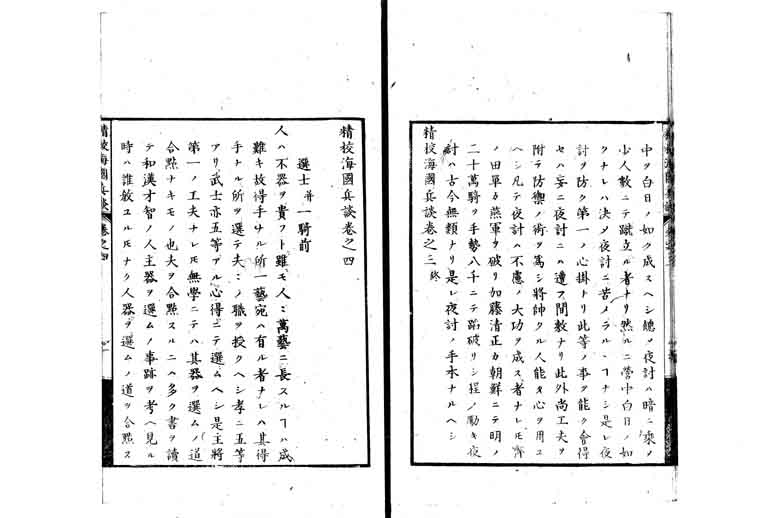 中ヲ白日ノ如ク成スヘシ總テ夜討ハ暗ニ乘メ
少人數ニテ蹴立ル者ナリ然ルニ營中白日ノ如
クナレハ決メ夜討ニ苦メラルヽヿナシ是レ夜
討ヲ防ク第一ノ心掛ナリ此等ノ事ヲ能ク會得
セハ妄ニ夜討ニハ遭フ間敷ナリ此外尚工夫ヲ
附テ防禦ノ術ヲ爲シ將帥タル人能々心ヲ用ユ
ヘシ凡テ夜討ハ不慮ノ大功ヲ成ス者ナレ𪜈齊
ノ田單カ燕軍ヲ破リ加藤清正カ朝鮮ニテ明ノ
二十萬騎ヲ手勢八千ニテ蹈破リシ程ノ働キ夜
討ハ古今無類ナリ是レ夜討ノ手本ナルヘシ
精挍海國兵談卷之三終
精挍海國兵談卷之四
選士并一騎前
人ハ不器ヲ貴フト雖モ人々萬藝ニ長スルヿハ成
難キ故得手ナル所一藝宛ハ有ル者ナレハ其得
手ナル所ヲ選テ夫々ノ職ヲ授クヘシ孝ニ五等
アリ武士亦五等アル心得ニテ選ムヘシ是主將
第一ノ工夫ナレ𪜈無學ニテハ其器ヲ選ムノ道
合點ナキモノ也夫ヲ合點スルニハ多ク書ヲ讀
テ和漢才智ノ人主器ヲ選ムノ事跡ヲ考ヘ見ル
時ハ誰敎ユル𪜈ナク人器ヲ選ムノ道ヲ合點ス
精挍海國兵談 卷之四